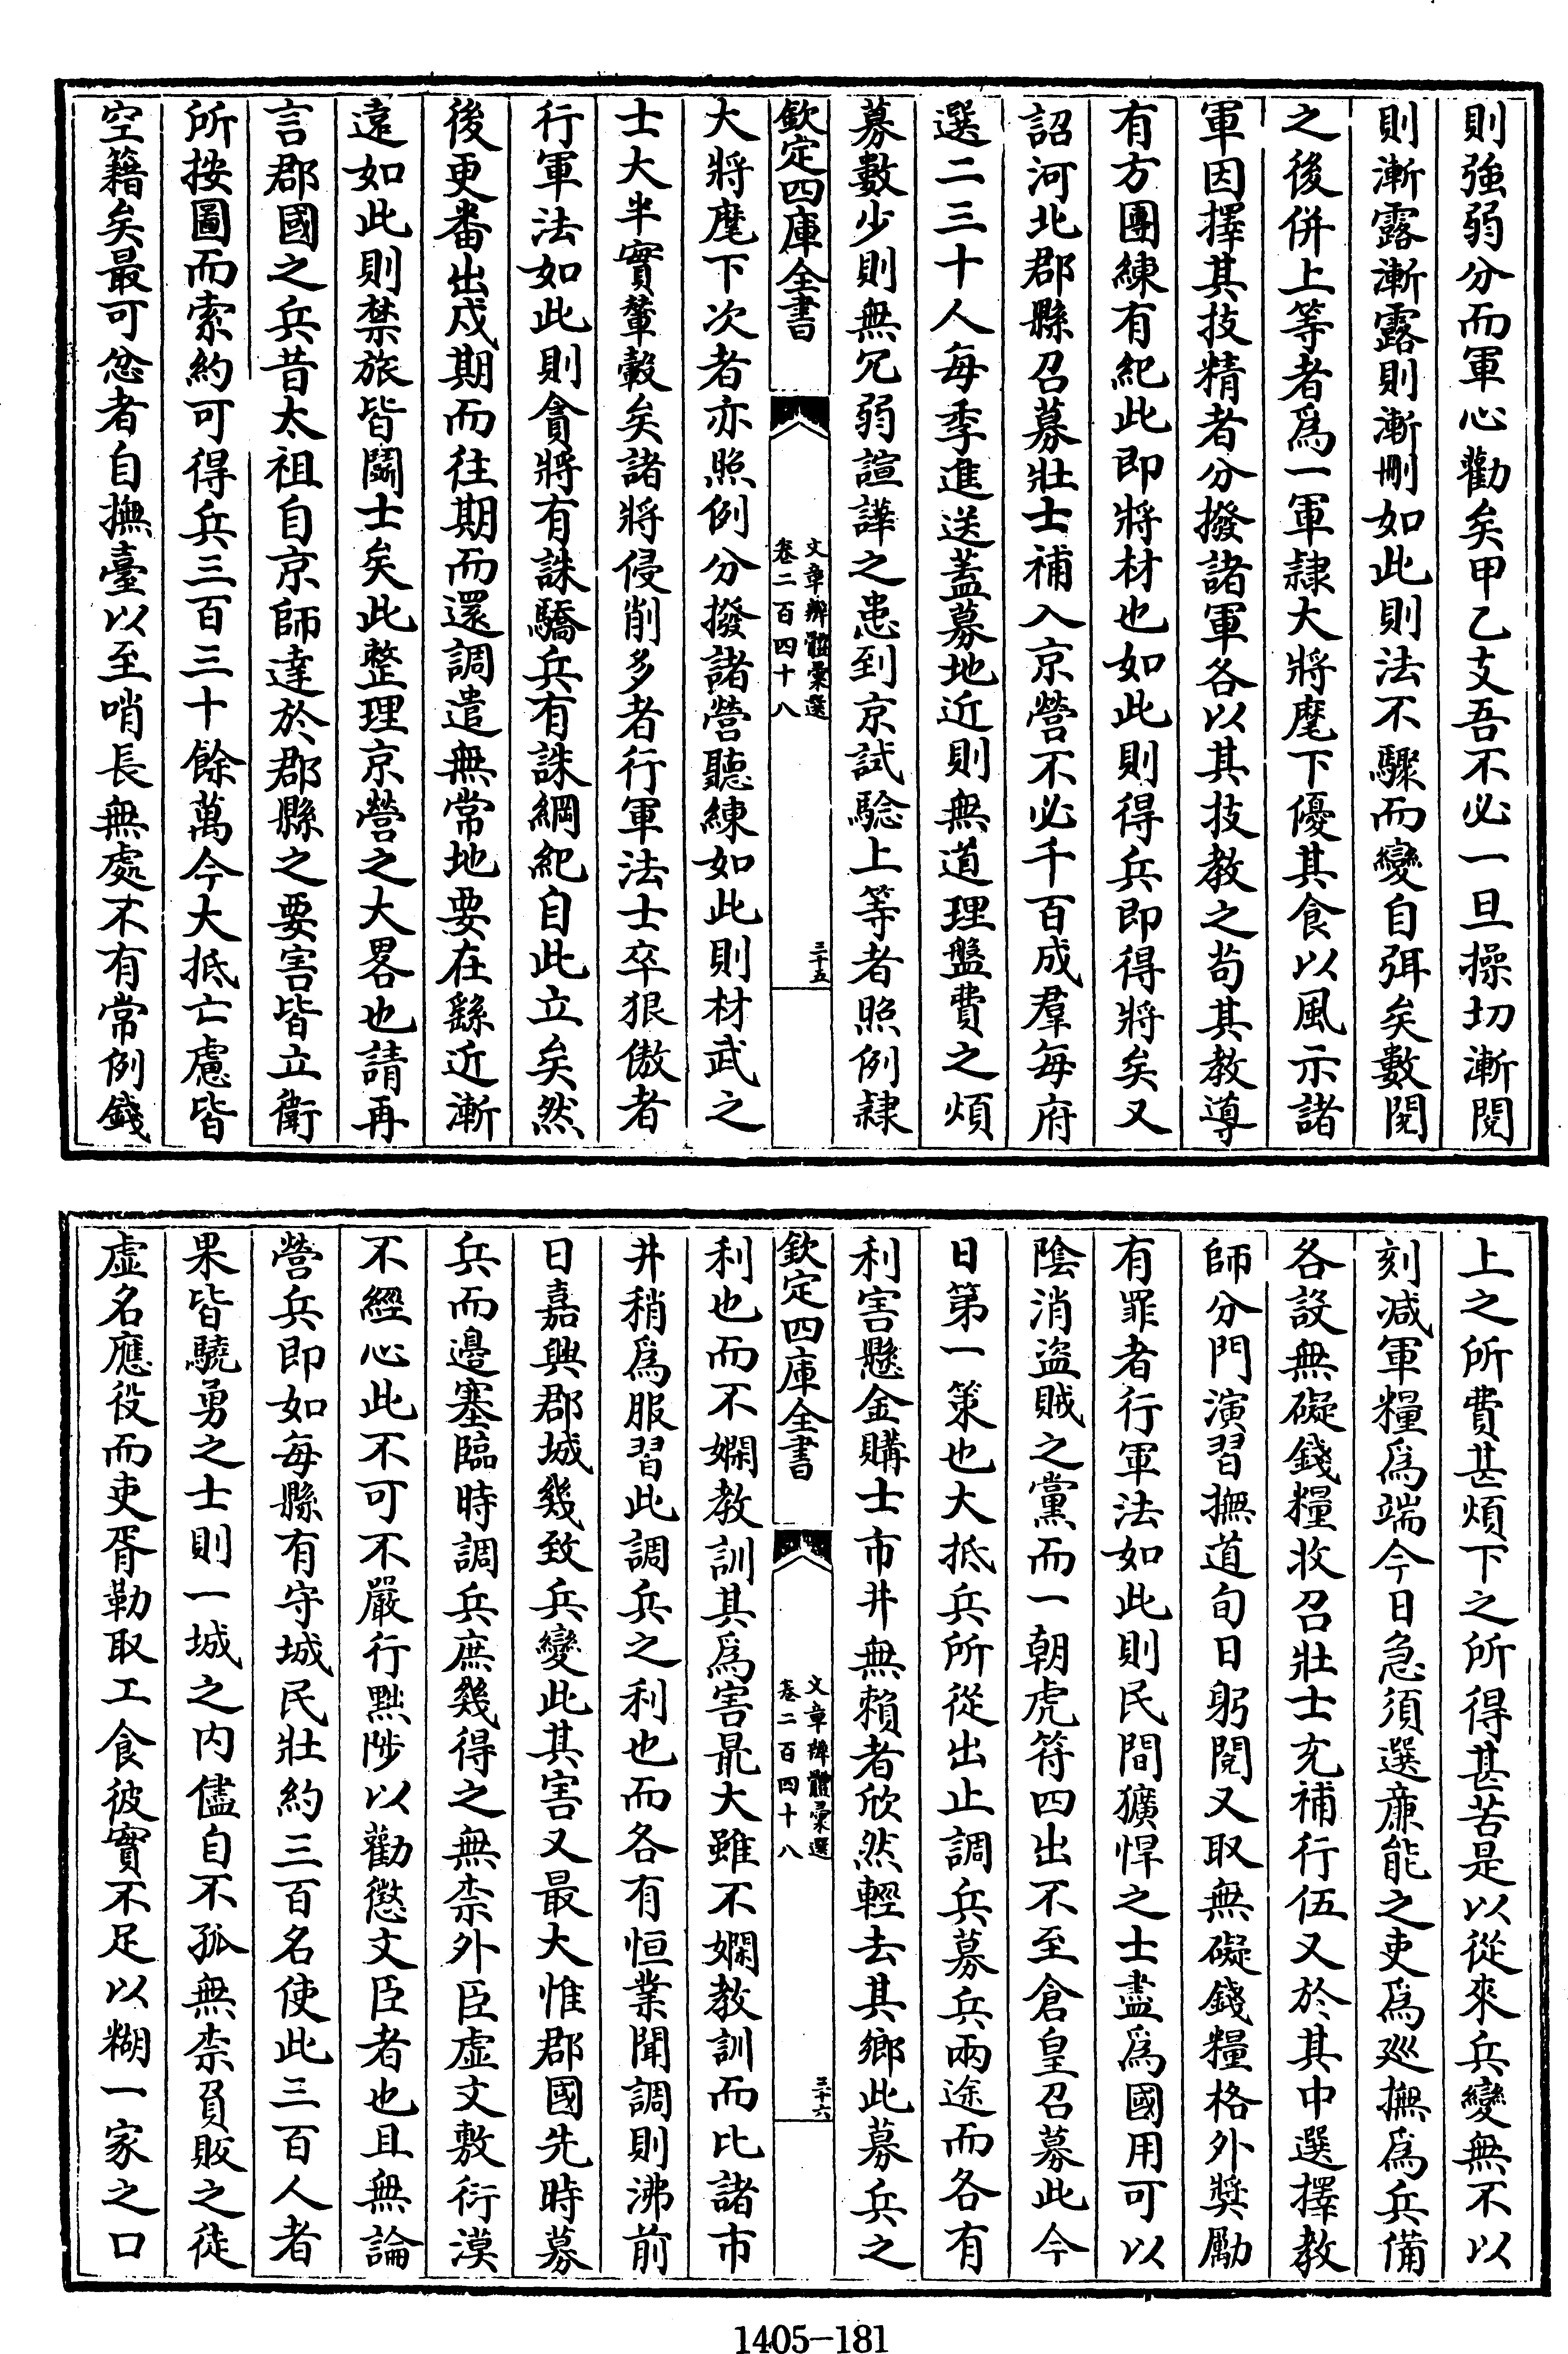 則強弱分而軍心勸矣甲乙支吾不必一旦操切漸閱
則漸露漸露則漸刪如此則法不驟而變自弭矣數閱
之後併上等者爲一軍隷大將麾下優其食以風示諸
軍因擇其技精者分撥諸軍各以其技教之苟其教導
有方團練有紀此即將材也如此則得兵即得將矣又
詔河北郡縣召募壯士補入京營不必千百成羣每府
選二三十人每季進送蓋募地近則無道理盤費之煩
募數少則無冗弱諠譁之患到京試驗上等者照例隷
欽定四庫全書
文章辨體彙選
卷二百四十八
三十五
大將麾下次者亦照例分撥諸營聽練如此則材武之
士大半實輦轂矣諸將侵削多者行軍法士卒狠傲者
行軍法如此則貪將有誅驕兵有誅綱紀自此立矣然
後更番出戍期而往期而還調遣無常地要在繇近漸
遠如此則禁旅皆鬬士矣此整理京營之大畧也請再
言郡國之兵昔太祖自京師達於郡縣之要害皆立衛
所按圖而索約可得兵三百三十餘萬今大抵亡慮皆
空籍矣最可忿者自撫臺以至哨長無處不有常例錢
上之所費甚煩下之所得甚苦是以從來兵變無不以
刻減軍糧爲端今日急須選亷能之吏爲廵撫爲兵備
各設無礙錢糧收召壯士充補行伍又於其中選擇教
師分門演習撫道旬日躬閱又取無礙錢糧格外獎勵
有罪者行軍法如此則民間獷悍之士盡爲國用可以
陰消盜賊之黨而一朝虎符四出不至倉皇召募此今
日第一策也大抵兵所從出止調兵募兵兩途而各有
利害懸金購士市井無賴者欣然輕去其鄉此募兵之
欽定四庫全書
文章辨體彙選
卷二百四十八
三十六
利也而不嫻教訓其爲害最大雖不嫻教訓而比諸市
井稍爲服習此調兵之利也而各有恒業聞調則沸前
日嘉興郡城幾致兵變此其害又最大惟郡國先時募
兵而邊塞臨時調兵庶幾得之無柰外臣虛文敷衍漠
不經心此不可不嚴行黜陟以勸懲文臣者也且無論
營兵即如每縣有守城民壯約三百名使此三百人者
果皆驍勇之士則一城之内儘自不孤無柰負販之徒
虛名應役而吏胥勒取工食彼實不足以糊一家之口
1405-181